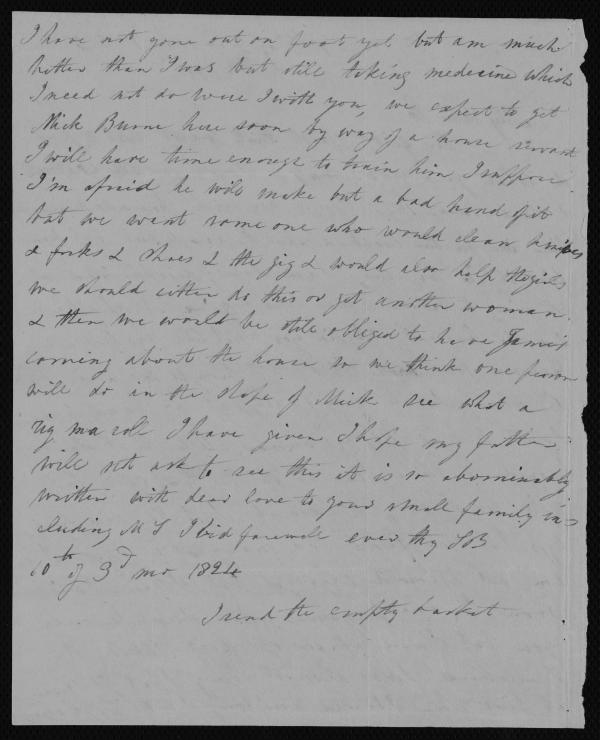 I have not gone out on foot yet but am much
better than I was but still taking medecine which
I need not do were I with you, we expect to get
Mick Burne here soon by way of a house servant
I will have time enough to train him I suppose
I'm afraid he will make but a bad hand of it
but we want some one who would clean knives
& forks & shoes & the gig & would also help the girls
we should either do this or get another woman
& then we would be still obliged to have James
coming about the house so we think one person
will do in the shape of Mick see what a
rig ma role I have given I hope my father
will not ask to see this it is so abominably
written with dear love to your small family in=
cluding M S I bid farewell ever thy SB
10th of 3d mo 1824
I send the empty basket